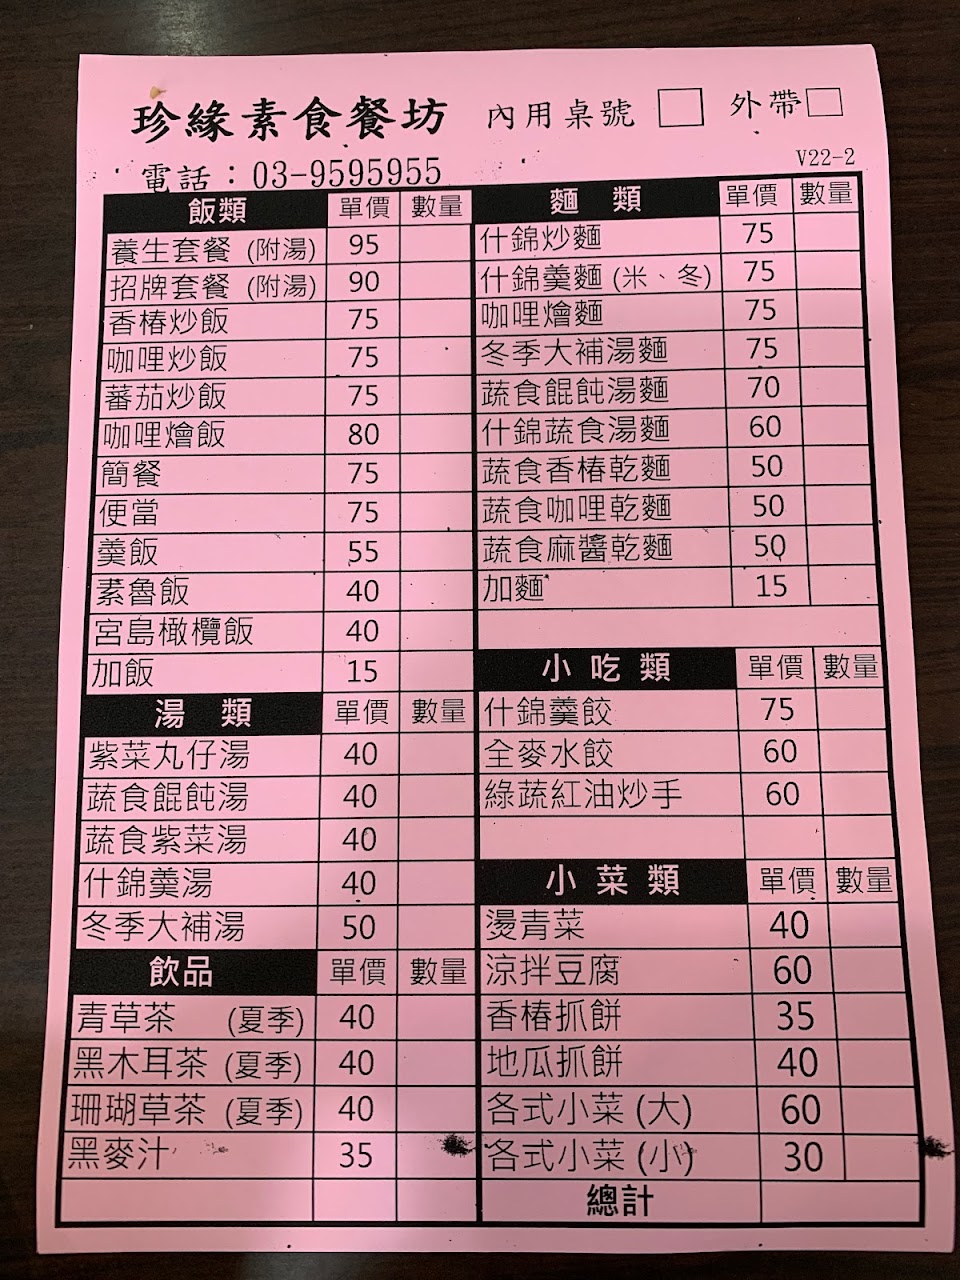 珍緣素食餐坊 內用桌號 外帶
電話：03-9595955
V22-2
飯類 單價 數量
養生套餐 (附湯) 95
招牌套餐 (附湯) 90
香椿炒飯 75
咖哩炒飯 75
蕃茄炒飯 75
咖哩燴飯 80
簡餐 75
便當 75
羹飯 55
素魯飯 40
宮島橄欖飯 40
加飯 15
湯類 單價 數量
紫菜丸仔湯 40
蔬食餛飩湯 40
蔬食紫菜湯 40
什錦羹湯 40
冬季大補湯 50
飲品 單價 數量
青草茶 (夏季) 40
黑木耳茶 (夏季) 40
珊瑚草茶 (夏季) 40
黑麥汁 35
麵類 單價 數量
什錦炒麵 75
什錦羹麵 (米、冬) 75
咖哩燴麵 75
冬季大補湯麵 75
蔬食餛飩湯麵 70
什錦蔬食湯麵 60
蔬食香椿乾麵 50
蔬食咖哩乾麵 50
蔬食麻醬乾麵 50
加麵 15
小吃類 單價 數量
什錦羹餃 75
全麥水餃 60
綠蔬紅油炒手 60
小菜類 單價 數量
燙青菜 40
涼拌豆腐 60
香椿抓餅 35
地瓜抓餅 40
各式小菜 (大) 60
各式小菜 (小) 30
總計